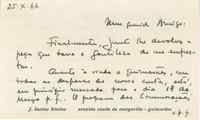 25.X.66
Meu querido Amigo:
Finalmente, junto lhe devolvo a
peça que teve a gentileza de me empres-
tar.
Quanto à vinda a Guimarães, em
todas as despesas de nossa conta, está
em princípio marcada para o dia 18 de
Março p.f. O programa das Comemorações
J. Santos Simões avenida conde de margaride - guimarães
v.p.f.